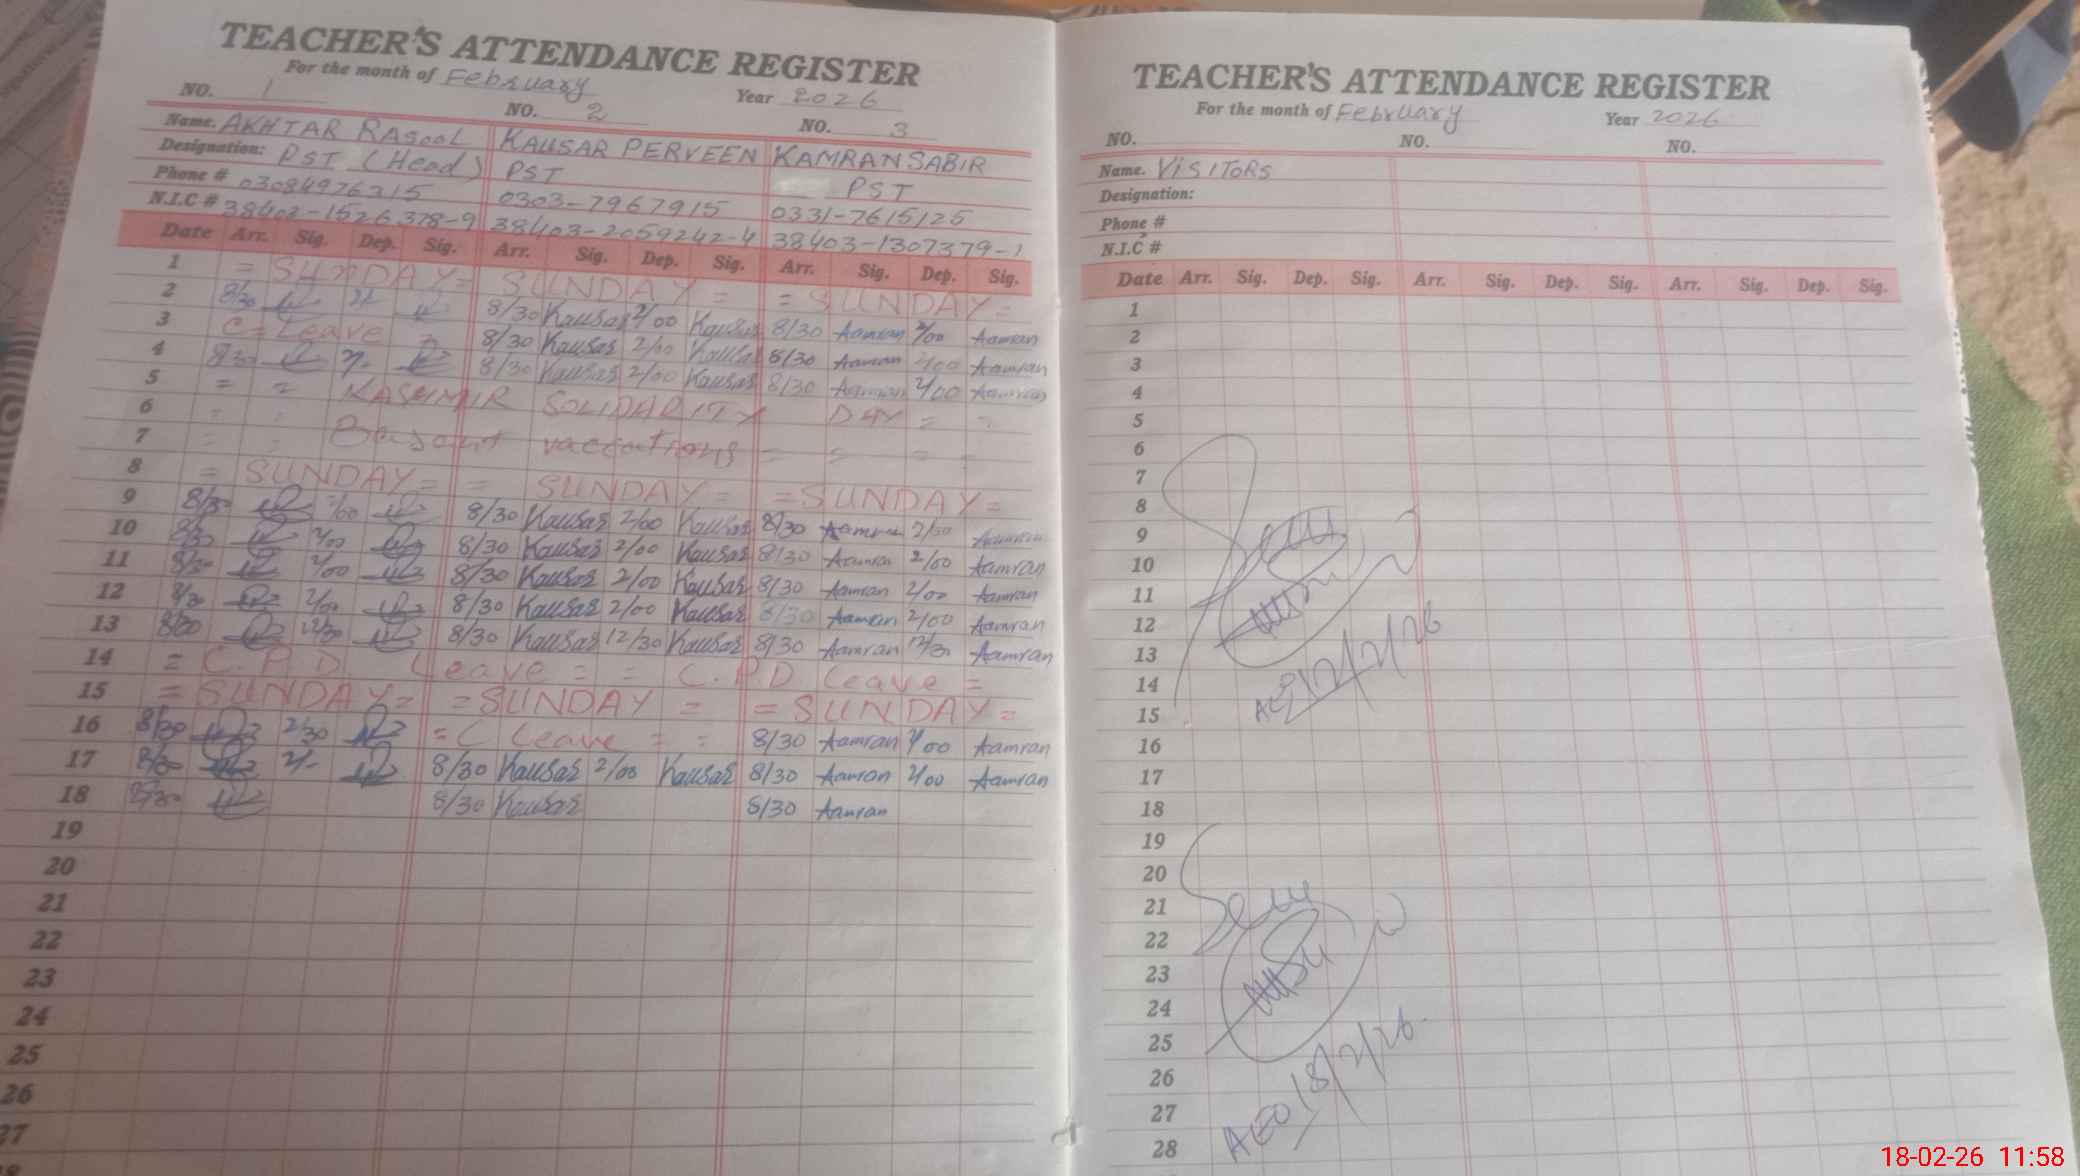 TEACHER'S ATTENDANCE REGISTER
For the month of February Year 2026
NO. 1 NO. 2 NO. 3
Name. AKHTAR RASOOL KAUSAR PERVEEN KAMRAN SABIR
Designation: PST (Head) PST PST
Phone # 03084976315 0303-7967915 0331-7615125
N.I.C # 38403-1526378-9 38403-2059242-4 38403-1307379-1
Date Arr. Sig. Dep. Sig. Arr. Sig. Dep. Sig. Arr. Sig. Dep. Sig.
1 = SUNDAY = SUNDAY = = SUNDAY =
2 8/30 8/30 Kausar 2/00 Kausar 8/30 Aamran 2/00 Aamran
3 C = Leave = 8/30 Kausar 2/00 Kausar 8/30 Aamran 2/00 Aamran
4 8/30 2/- 8/30 Kausar 2/00 Kausar 8/30 Aamran 2/00 Aamran
5 = = KASHMIR SOLIDARITY DAY = =
6 = = Basant vaccations = = = =
7
8 = SUNDAY = = SUNDAY = = SUNDAY =
9 8/30 2/00 8/30 Kausar 2/00 Kausar 8/30 Aamran 2/00 Aamran
10 8/30 2/00 8/30 Kausar 2/00 Kausar 8/30 Aamran 2/00 Aamran
11 8/30 2/00 8/30 Kausar 2/00 Kausar 8/30 Aamran 2/00 Aamran
12 8/30 2/00 8/30 Kausar 2/00 Kausar 8/30 Aamran 2/00 Aamran
13 8/30 12/30 8/30 Kausar 12/30 Kausar 8/30 Aamran 12/30 Aamran
14 = C.P.D. Leave = = C.P.D Leave =
15 = SUNDAY = = SUNDAY = = SUNDAY =
16 8/30 2/30 = C Leave = = 8/30 Aamran 2/00 Aamran
17 8/30 2/- 8/30 Kausar 2/00 Kausar 8/30 Aamran 2/00 Aamran
18 8/30 8/30 Kausar 8/30 Aamran
19
20
21
22
23
24
25
26
27
TEACHER'S ATTENDANCE REGISTER
For the month of February Year 2026
NO. NO. NO.
Name. VISITORS
Designation:
Phone #
N.I.C #
Date Arr. Sig. Dep. Sig. Arr. Sig. Dep. Sig. Arr. Sig. Dep. Sig.
1
2
3
4
5
6
7
8
9
10
11
12
13
14
AEO 12/2/26
15
16
17
18
19
20
21
22
23
24
25
26
27
AEO 18/2/26
28
18-02-26 11:58